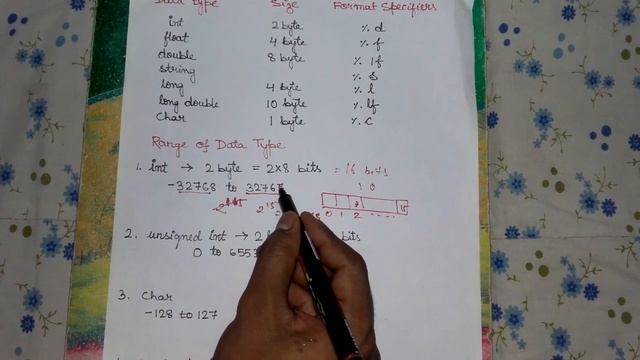 Data Type Size Format Specifiers
int 2 byte %d
float 4 byte %f
double 8 byte %lf
string %s
long 4 byte %l
long double 10 byte %lf
Char 1 byte %c
Range of Data Type
1. int → 2 byte = 2×8 bits = 16 bits
-32768 to 3276
1 0
2^15
0 1 2 .... 15
2. unsigned int → 2 bits
0 to 655
3. Char
-128 to 127